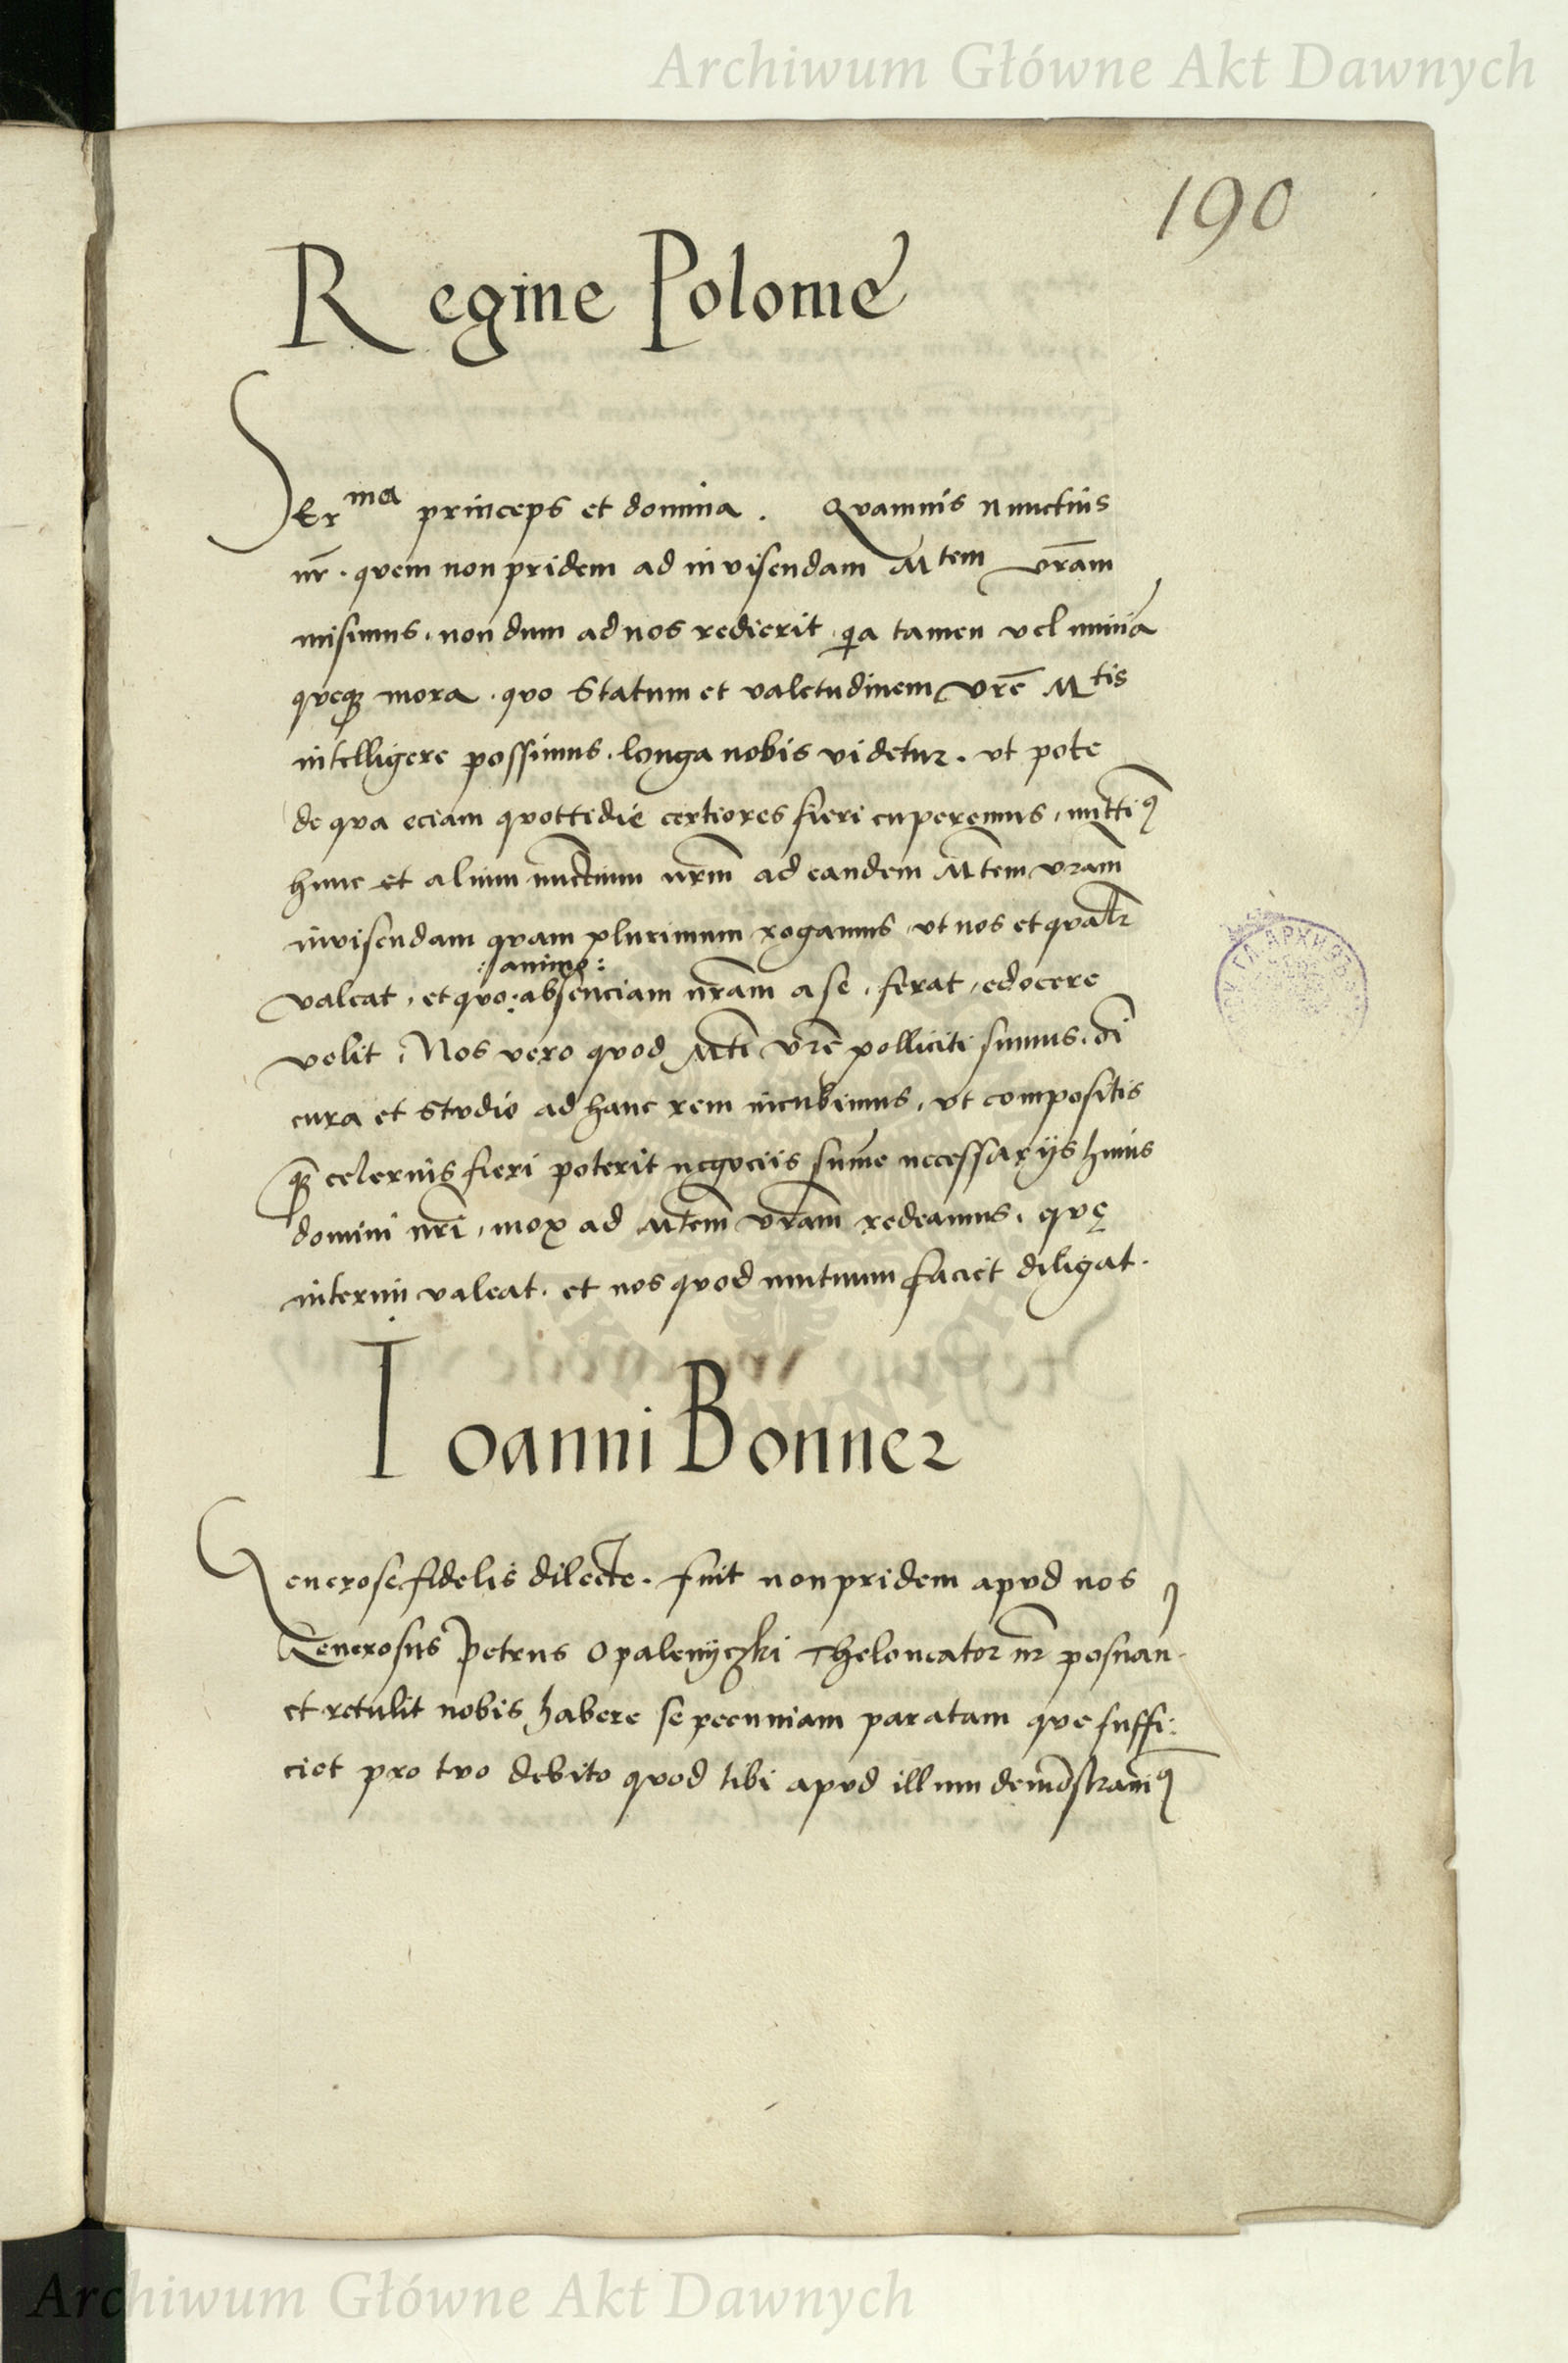 Archiwum Główne Akt Dawnych
190
Regine Polonie
Serma princeps et domina. Qvamuis nunctius
nr̄. qvem non pridem ad invisendam Mtem vrām
misimus, non dum ad nos redierit, qia tamen vel minia
qveqz mora. qvo Statum et valetudinem vrē Mtis
intelligere possimus, longa nobis videtur. vt pote
de qva eciam qvottidie certiores fieri cuperemus, mittiꝰ
hunc et alium nunctium nrm̄ ad eandem Mtem vrām
invisendam qvam plurimum rogamus, vt nos et qvalr̄
:animo:
valeat, et qvo: absenciam nrām a se, ferat, edocere
velit, Nos vero qvod Mti vrē polliciti sumus, oī
cura et stvdio ad hanc rem incubimus, vt compositis
qz̄ celerius fieri poterit negociis sum̄e necessarijs huius
domini nrī, mox ad Mtem vrām redeamus, qvę
interim valeat, et nos qvod mutuum faciet diligat.
Ioanni Bonner
Generose fidelis dilecte. fuit non pridem apvd nos
Generosus Petrus Opalenyczki Theloneator nr̄ posnan.
et retulit nobis habere se pecuniam paratam qve suffi:
ciet pro tvo debito qvod tibi apvd illum demōstramꝰ
Archiwum Główne Akt Dawnych